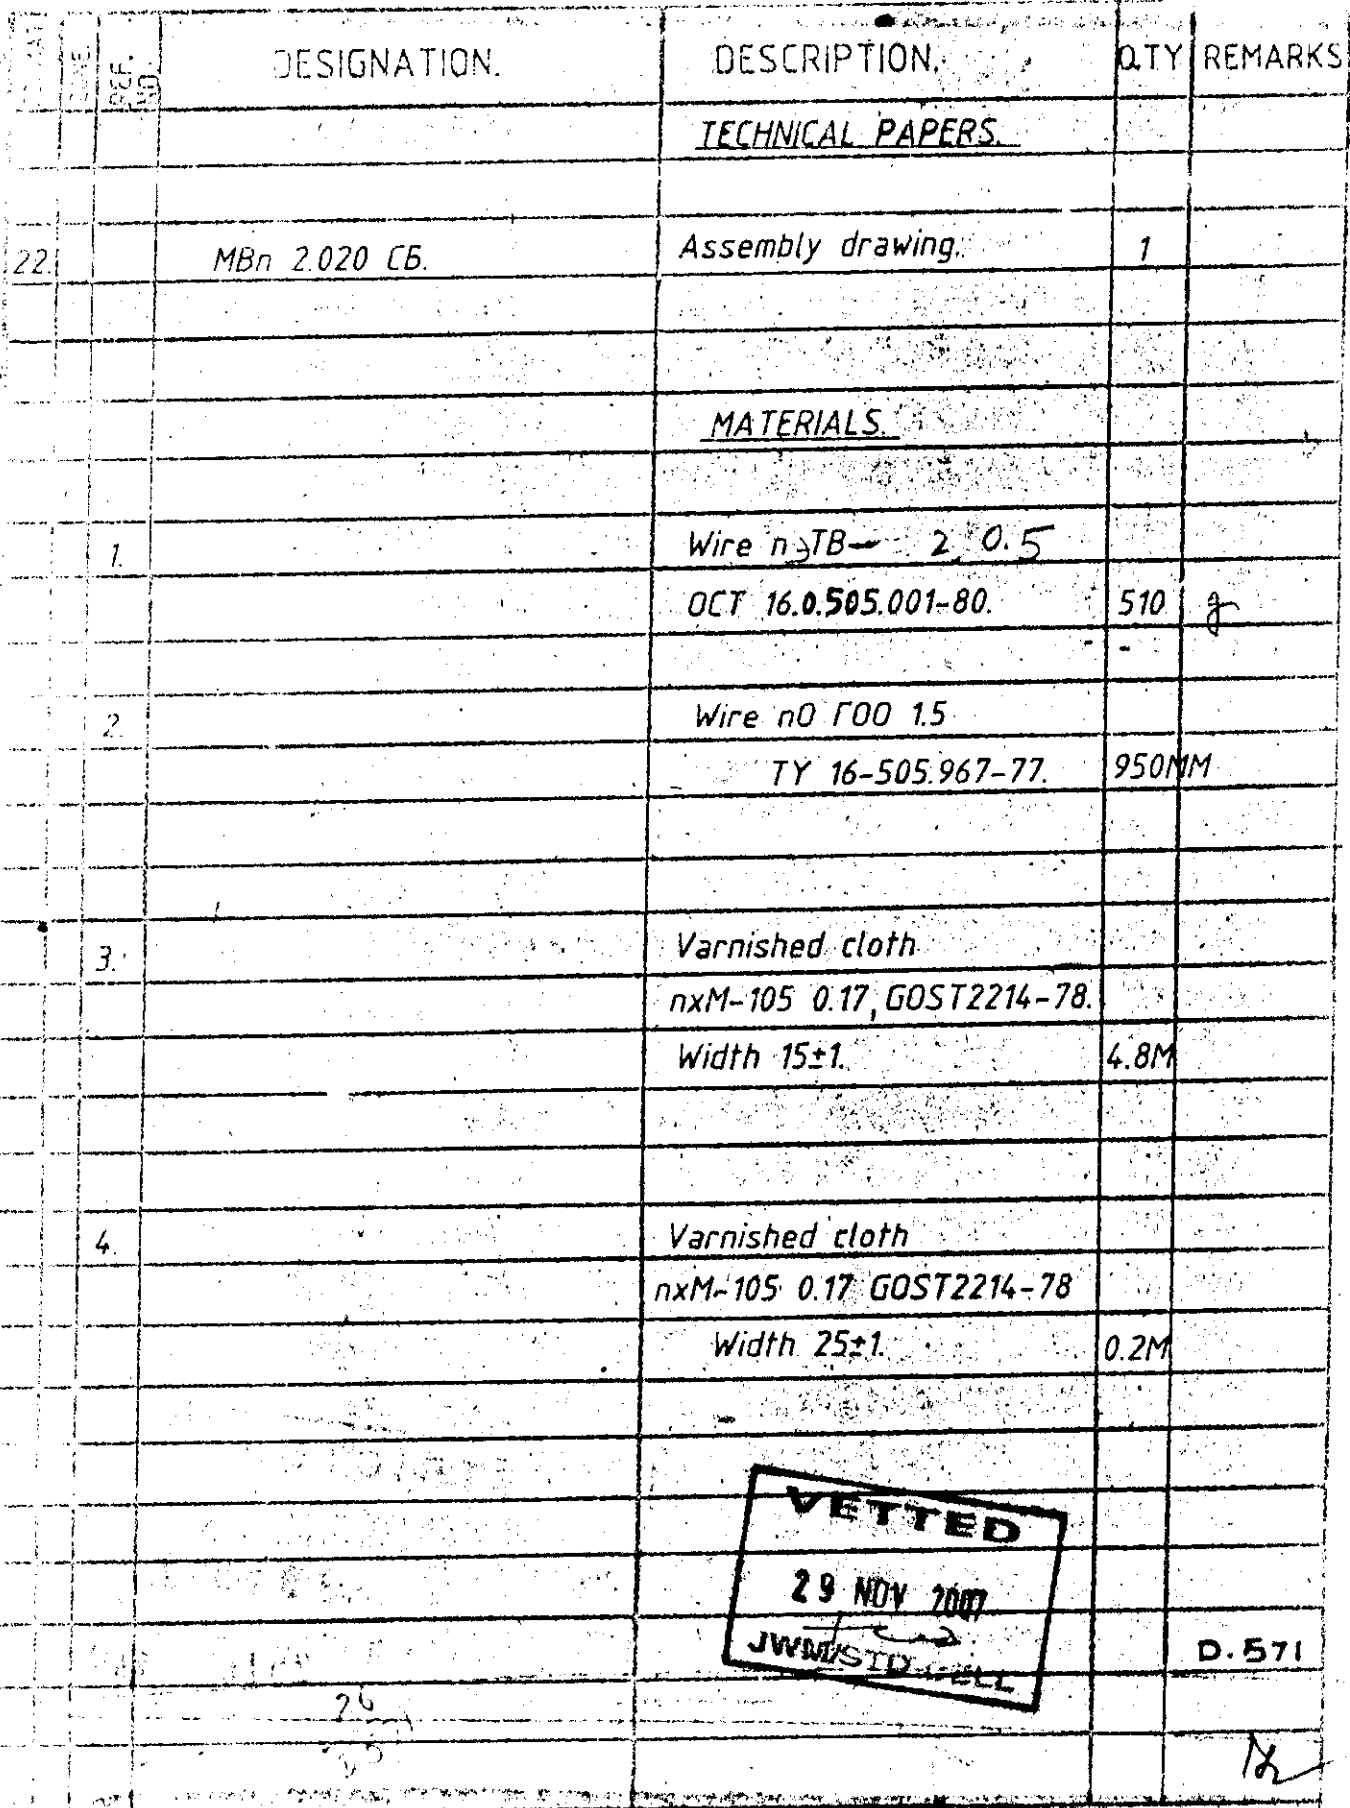 REF. NO. DESIGNATION. DESCRIPTION. QTY REMARKS
TECHNICAL PAPERS.
22. MBn 2.020 СБ. Assembly drawing. 1
MATERIALS.
1. Wire nэTB- 2 0.5
OCT 16.0.505.001-80. 510 g
2. Wire nO ГОО 1.5
TY 16-505.967-77. 950MM
3. Varnished cloth
nxM-105 0.17, GOST2214-78.
Width 15±1. 4.8M
4. Varnished cloth
nxM-105 0.17 GOST2214-78
Width 25±1. 0.2M
VETTED
29 NOV 2007
JWM/STD CELL
D.571